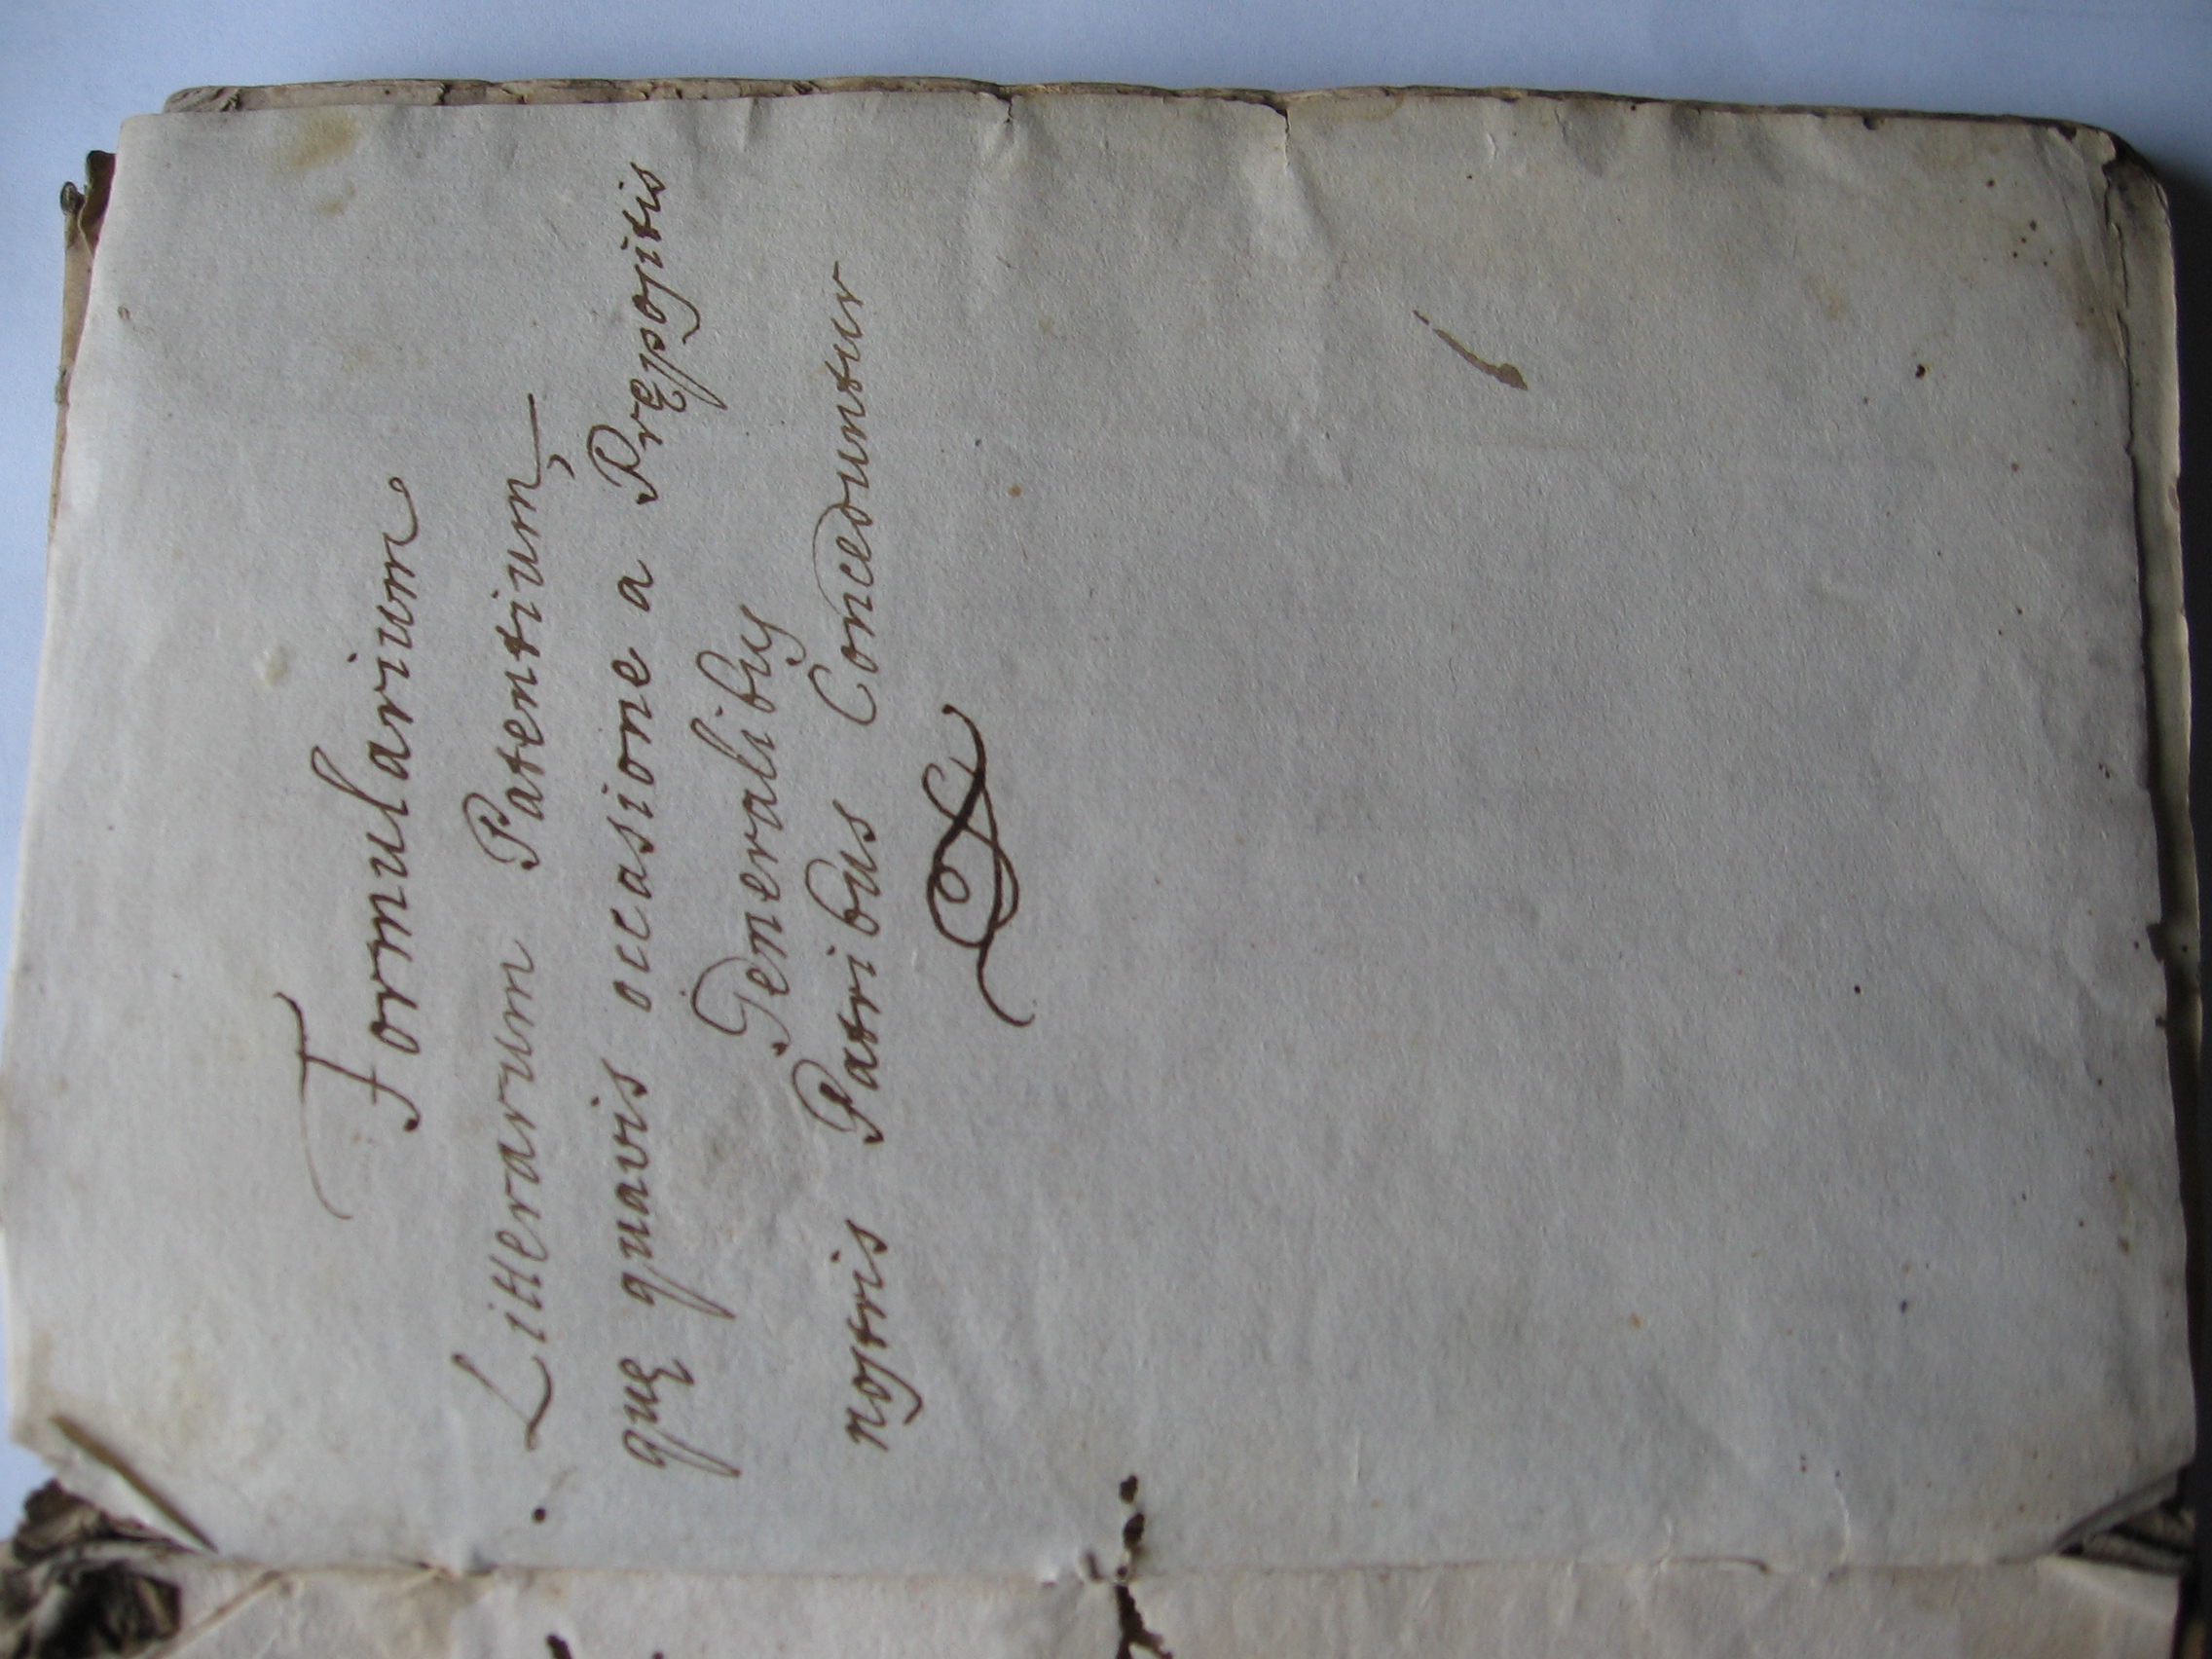 Formularium
Litterarum Patentium,
quę quavis occasione a Prępositis
Generalibus
nostris Patribus Conceduntur